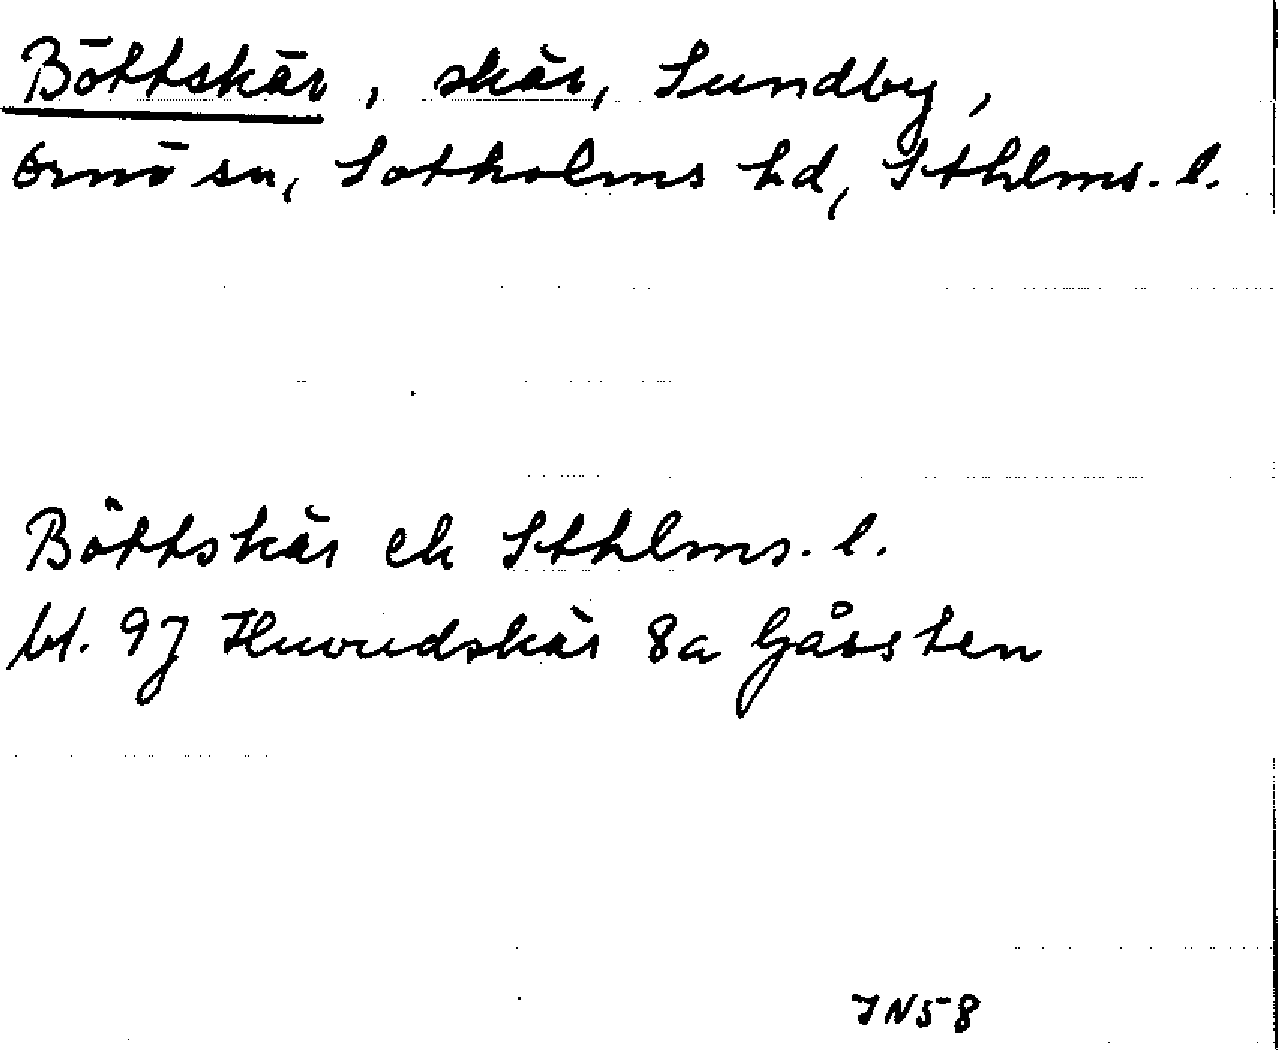 Böttskär, skär, Sundby,
Ornö sn, Sotholms hd, Sthlms. l.
Böttskär ek Sthlms. l.
bl. 9J Huvudskär 8a Gåssten
JN58